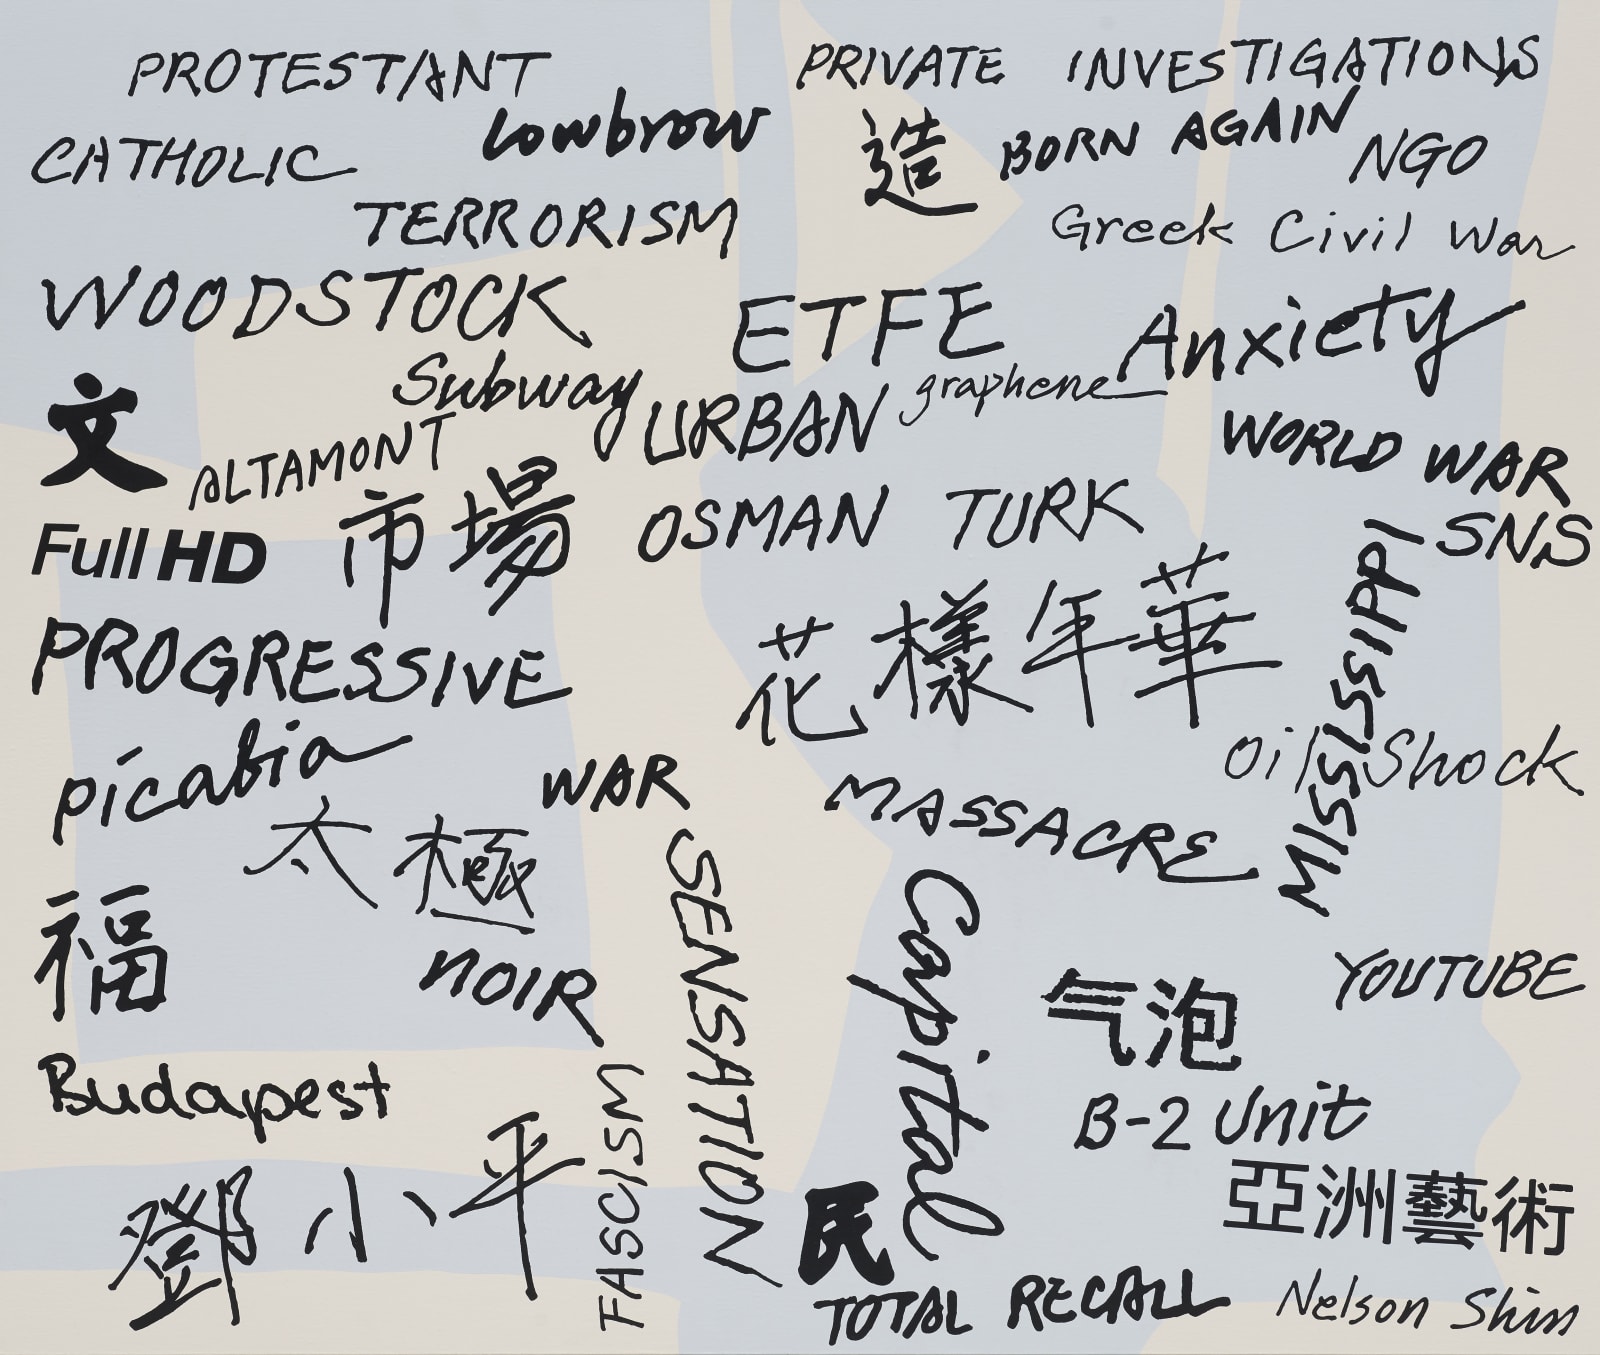 PROTESTANT
PRIVATE INVESTIGATIONS
Lowbrow
CATHOLIC
造
BORN AGAIN
NGO
TERRORISM
Greek Civil War
WOODSTOCK
ETFE
Anxiety
Subway
graphene
文
URBAN
WORLD WAR
ALTAMONT
市場
OSMAN TURK
SNS
Full HD
花樣年華
MISSISSIPPI
PROGRESSIVE
picabia
WAR
Oil Shock
MASSACRE
太極
SENSATION
Capital
福
NOIR
YOUTUBE
气泡
Budapest
B-2 Unit
鄧小平
FASCISM
民
亞洲藝術
TOTAL RECALL
Nelson Shin